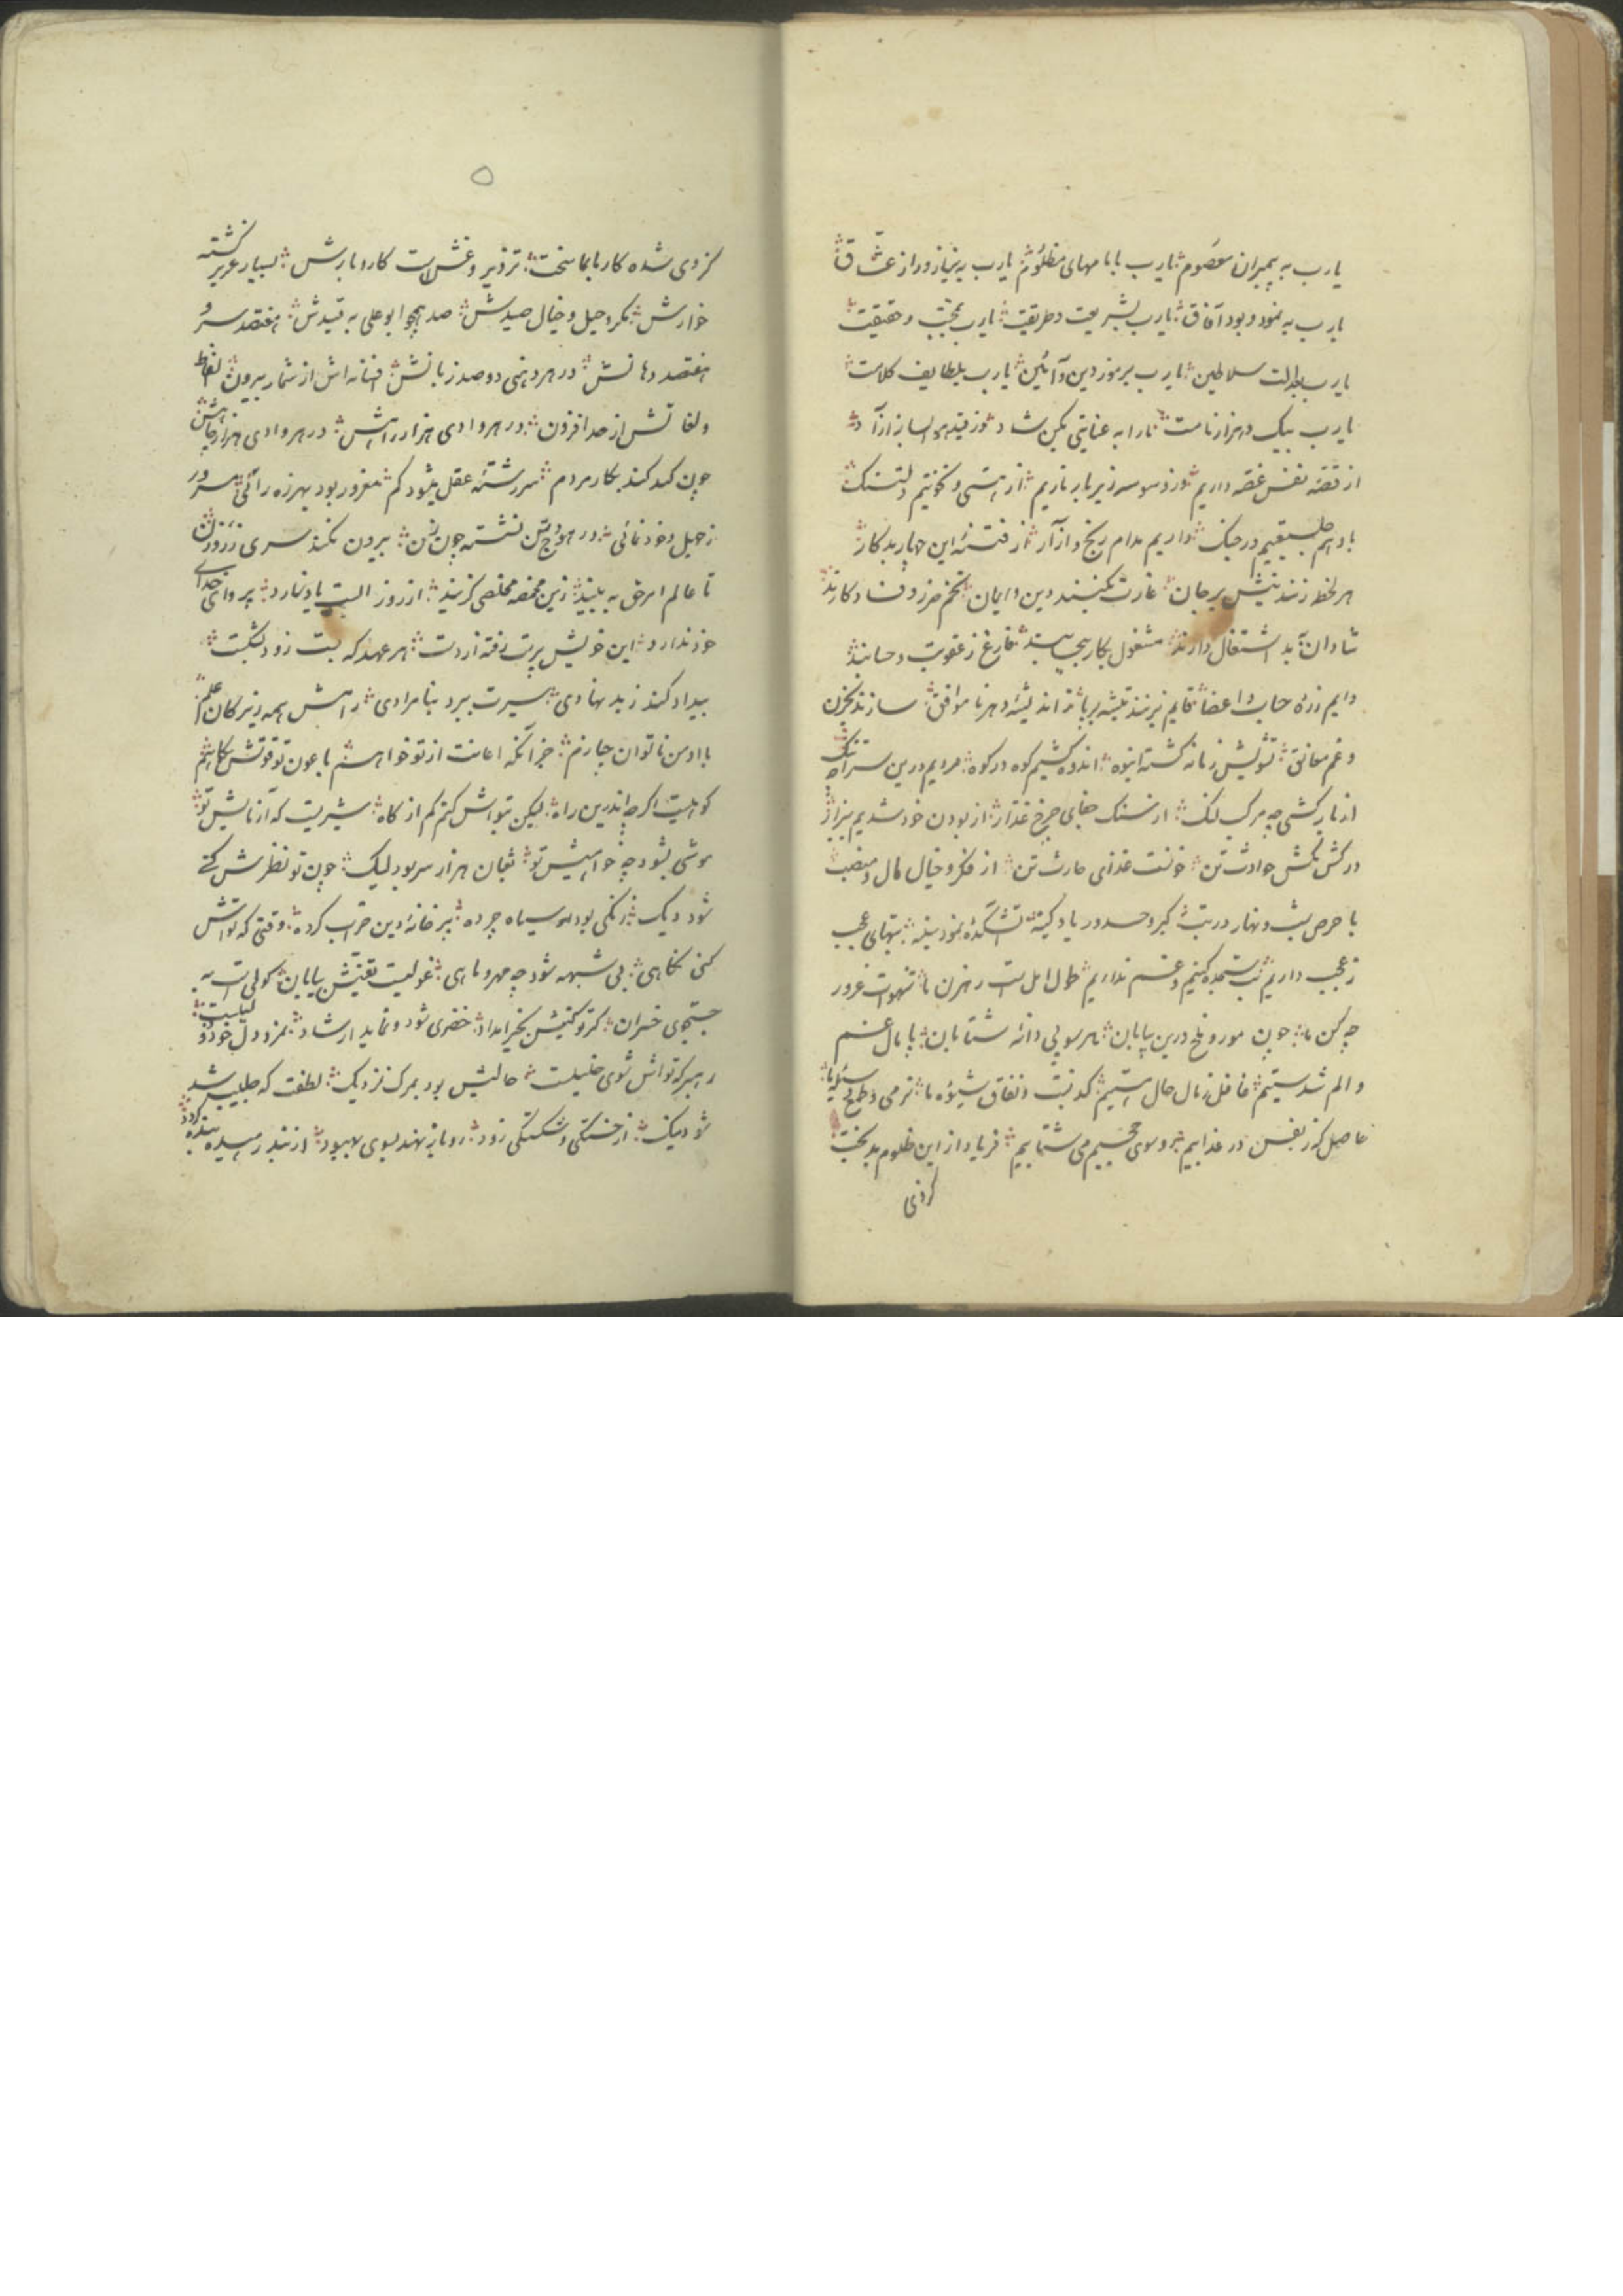 یارب به پیمبران معصوم ؞ یارب بامامهای مظلوم ؞ یارب به نیاز و راز عشاق ؞
یارب به نمود و بود آفاق ؞ یارب بشریعت و طریقت ؞ یارب بمحبت و حقیقت ؞
یارب بعدالت سلاطین ؞ یارب برموز دین و آئین ؞ یارب بلطایف کلامت ؞
یارب بیک و هزار نامت ؞ ما را به عنایتی بکن شاد ؞ وز قید هوا بساز آزاد ؞
از قصه نفس غصه داریم ؞ وز وسوسه زیر بار باریم ؞ از هستی و نخوتیم دلتنک ؞
با وهم طبیعتیم در جنک ؞ داریم مدام رنج و آزار ؞ از فتنهٔ این چهار بدکار ؞
هر لحظه زنند نیش بر جان ؞ غارت بکنند دین و ایمان ؞ تخم ضرر و فساد کارند ؞
شادان به بد اشتغال دارند ؞ مشغول بکار بیحسابند ؞ فارغ ز عقوبت و حسابند ؞
دایم زره حساب و اعضا ؞ قایم بزنند تیشه بر پا ؞ ز اندیشهٔ دهر ناموافق ؞ سازند بحزن
و غم معانق ؞ تشویش زمانه کشته انبوه ؞ اندوه کشیم کوه در کوه ؞ مردیم درین ستراه تنک
از بارکشی چه مرکب لنک ؞ از سنک جفای چرخ غدار ؞ از بودن خود شدیم بیزار ؞
در کش مکش حوادثت تن ؞ خونست غذای حارث تن ؞ از فکر و خیال مال و منصب ؞
با حرص بشب و نهار در تب ؞ کبر و حسد و ریا و کینه ؞ آتشکدهٔ نمود سینه ؞ بتهای عجب
ز عجب داریم ؞ بت سجده کنیم و غم نداریم ؞ طول امل است رهزن ما ؞ شهوات غرور
چه کن ما ؞ چون مور و ملخ درین بیابان ؞ هر سو پی دانه شتابان ؞ پامال غم
و الم شدستیم ؞ غافل ز مال حال هستیم ؞ کذبست و نفاق شیوهٔ ما ؞ نرمی و طمع وسیلهٔ ما ؞
حاصل کز نفس در عذابیم ؞ رو سوی جحیم می شتابیم ؞ فریاد از این ظلوم بدبخت ؞
کزوی
۵
کزوی شده کارها بما سخت ؞ تزویر و غش است کاروبارش ؞ بسیار عزیز کشته
خوارش ؞ مکر و حیل و خیال صیدش ؞ صد همچو ابوعلی به قیدش ؞ هفتصد سر و
هفتصد دهانش ؞ در هر دهنی دو صد زبانش ؞ افسانه اش از شمار بیرون ؞ الفاظ
و لغاتش از حد افزون ؞ در هر وادی هزار راهش ؞ در هر وادی هزار چاهش
چون کید کند بکار مردم ؞ سررشتهٔ عقل میشود کم ؞ مغرور بود بهرزه رائی ؞ مسرور
ز حیل و خودنمائی ؞ در هودج تن نشسته چون زن ؞ بیرون نکند سری ز روزن
تا عالم امر حق به بیند ؞ زین مخمصه مخلصی کزیند ؞ از روز الست یاد نارد ؞ پروای خدای
خود ندارد ؞ این خویش پرست رفته از دست ؞ هر عهد که بست زود بشکست ؞
بیداد کند ز بد نهادی ؞ سیرت ببرد بنامرادی ؞ راهش همه دیر کان علم ؞
با او من ناتوان چه سازم ؞ جز آنکه اعانت از تو خواهم ؞ با عون تو قوتش بکاهم
کوهیست اکرچه اندرین راه ؞ لیکن بتواش کنم کم از کاه ؞ شیریست که آزمایش تو ؞
موشی بشود چه خواهیش تو ؞ ثعبان هزار سر بود لیک ؞ چون تو نظرش کنی
شود دیک ؞ زنکی بود او سیاه چرده ؞ پر خانهٔ دین خراب کرده ؞ وقتی که تواش
کنی نکاهی ؞ بی شبهه شود چه مهر و ماهی ؞ غولیست بقعتش بیابان ؞ کوران به
جستجوی خسران ؞ کر تو کنیش بخیر امداد ؞ خضری شود و نماید ارشاد ؞ نمرود دل خود
رهبر که تواش شوی خلیلست ؞ حالش بود بمرک نزدیک ؞ لطفت که طبیب شد
شود نیک ؞ از خستکی و شکستکی زود ؞ رو باز نهد بسوی بهبود ؞ از بند رهیده بنده کردد